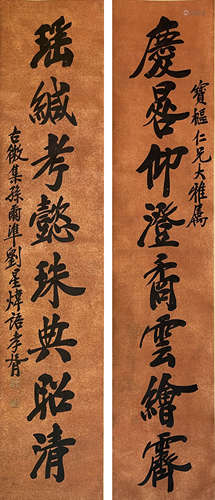 慶晷仰澄喬雲繪霽
寶樞仁兄大雅屬
瑶緘考懿珠典昭清
古微集孫爾準劉星煒語孝胥